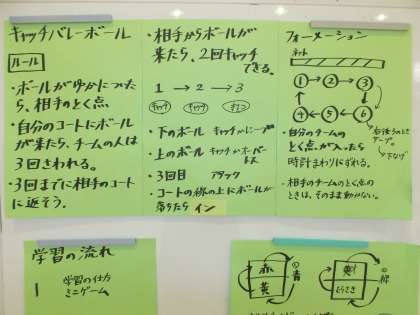 キャッチバレーボール
ルール
・ボールがゆかについたら、相手のとく点。
・自分のコートにボールが来たら、チームの人は3回さわれる。
・3回までに相手のコートに返そう。
・相手からボールが来たら、2回キャッチできる。
1 → 2 → 3
キャッチ キャッチ
・下のボール
・上のボール
・3回目 アタック
・コートの線の上にボールが落ちたら イン
フォーメーション
ネット
1 → 2 → 3
4 5 6
・自分のチームのとく点が入ったら時計まわりにずれる。
・相手のチームのとく点のときは、そのまま動かない。
学習の流れ
1 学習の仕方
ミニゲーム
赤
黄
青
緑